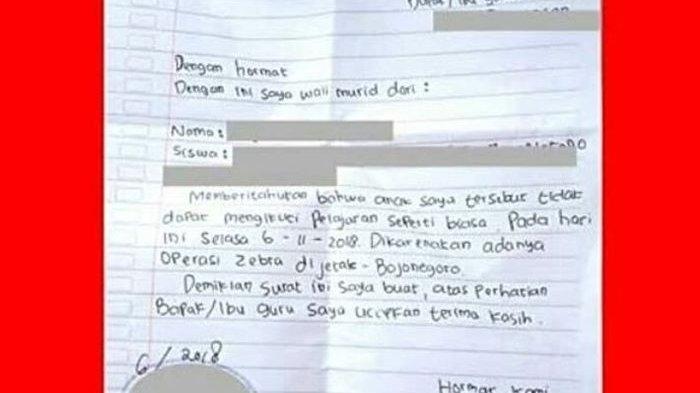 Dengan hormat
Dengan ini saya wali murid dari :
Nama :
Siswa :
Memberitahukan bahwa anak saya tersebut tidak
dapat mengikuti pelajaran seperti biasa. Pada hari
ini Selasa 6 - 11 - 2018. Dikarenakan adanya
operasi zebra di jetak - Bojonegoro.
Demikian surat ini saya buat, atas perhatian
Bapak/Ibu guru saya ucapkan terima kasih.
6/2018
Hormat kami